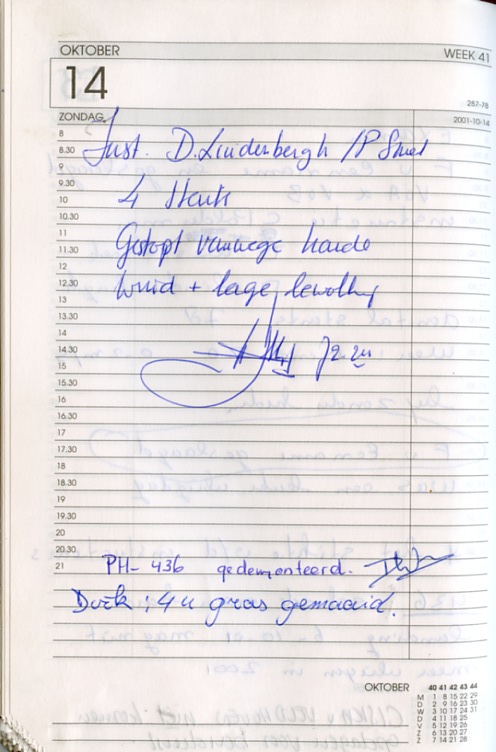 OKTOBER WEEK 41
14
287-78
ZONDAG 2001-10-14
8
8.30 Inst. D. Lindenbergh / P Smet
9
9.30
10 4 starts
10.30
11
11.30 Gestopt vanwege harde
12
12.30 wind + lage bewolking
13
13.30
14
14.30
15
15.30
16
16.30
17
17.30
18
18.30
19
19.30
20
20.30
21 PH-436 gedemonteerd.
Dirk : 4 u gras gemaaid.
OKTOBER 40 41 42 43 44
M 1 8 15 22 29
D 2 9 16 23 30
W 3 10 17 24 31
D 4 11 18 25
V 5 12 19 26
Z 6 13 20 27
Z 7 14 21 28